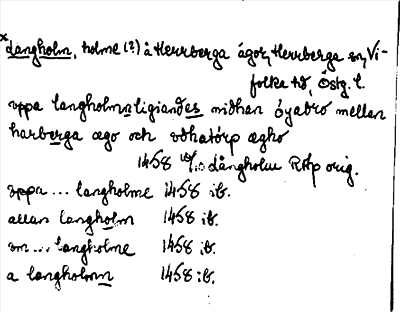 x Långholm, holme (?) å Herrberga ägor, Herrberga sn, Vi-
folka hd, Östg. l.
vppa langholmn ligiandes nidhan öyabro mellan
harberga ægo och vdhatörp ægho
1458 10/10 Långholm RAp orig.
vppa ... langholme 1458 ib.
allan langholm 1458 ib.
om ... langholme 1458 ib.
a langholmn 1458 ib.